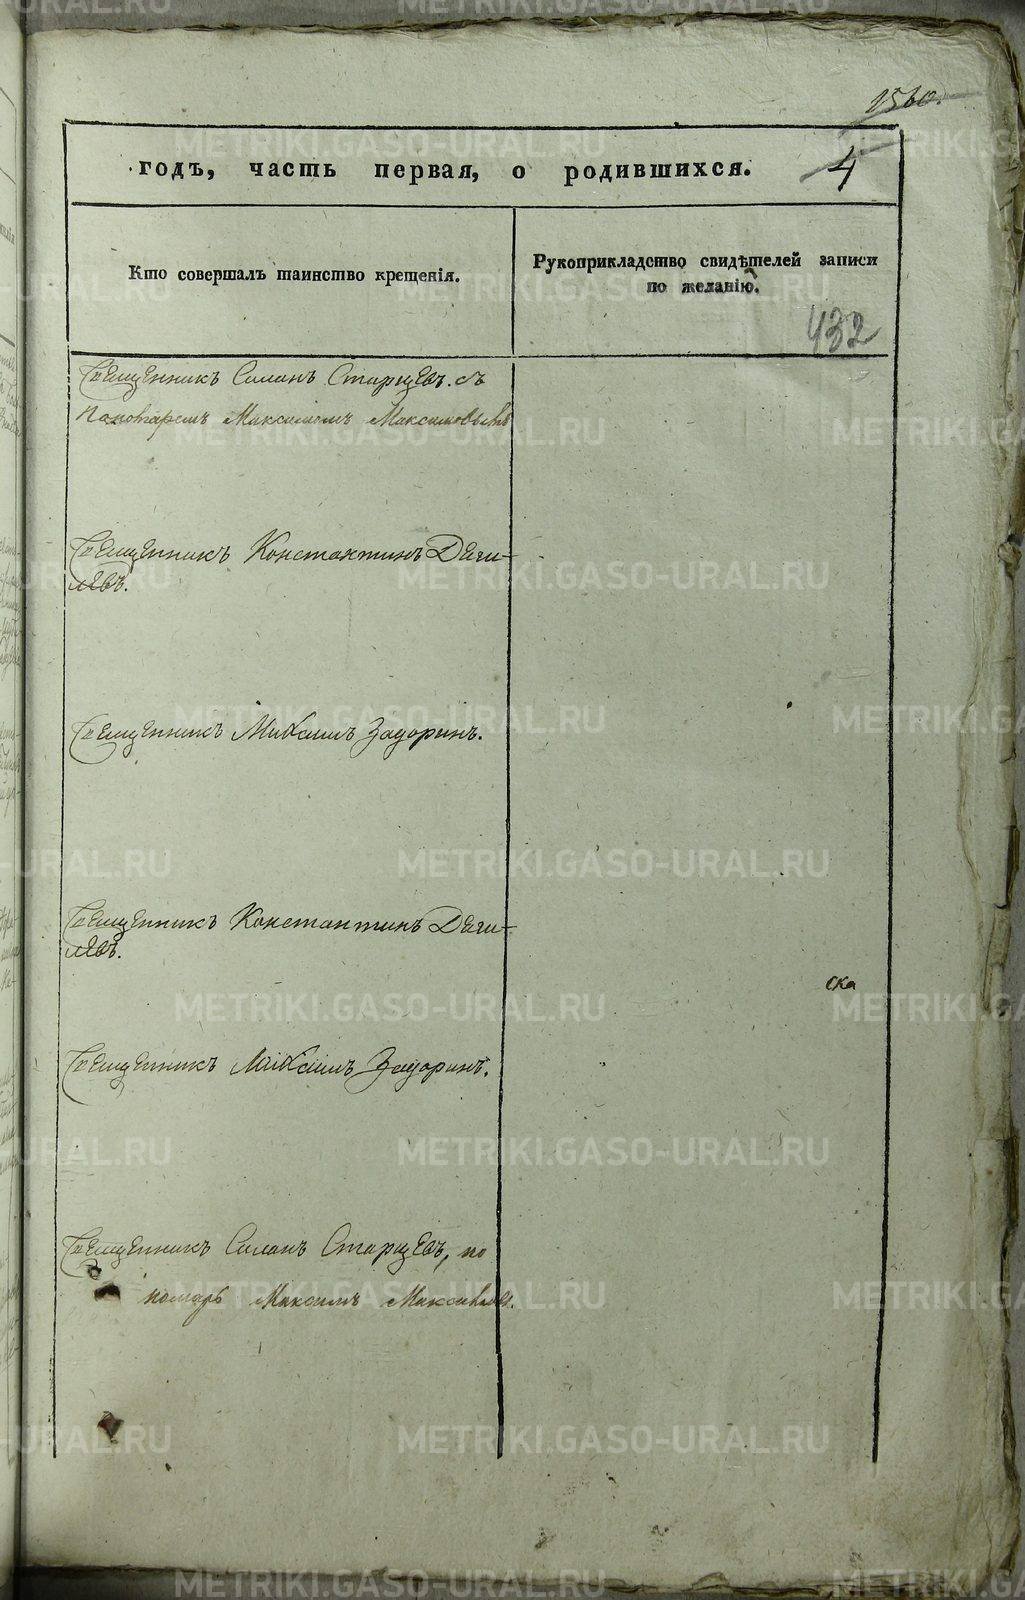 1560.
годъ, часть первая, о родившихся.
4
Кто совершалъ таинство крещенія.
Рукоприкладство свидѣтелей записи
по желанію.
432
Священникъ Симонъ Старцевъ. съ
Пономаремъ Максимомъ Максимовымъ
Священникъ Константинъ Дяги-
левъ.
Священникъ Михаилъ Задоринъ.
Священникъ Константинъ Дяги-
левъ.
ска
Священникъ Михаилъ Задоринъ.
Священникъ Симонъ Старцевъ, по
номарь Максимъ Максимовъ.
METRIKI.GASO-URAL.RU